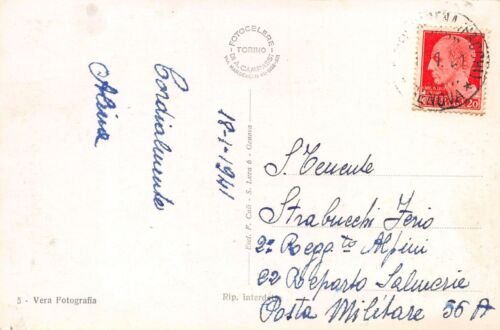 FOTOCELERE
TORINO
DI A. CAMPASSI
GENOVA
20
Cordialmente
Alina
18-1-1941
S. Tenente
Strabucchi Ferio
2º Reggto Alpini
22 Reparto Salmerie
Posta Militare 56 A
Esc. F. Culi - S. Luca 6 - Genova
5 - Vera Fotografia
Rip. Interdetta